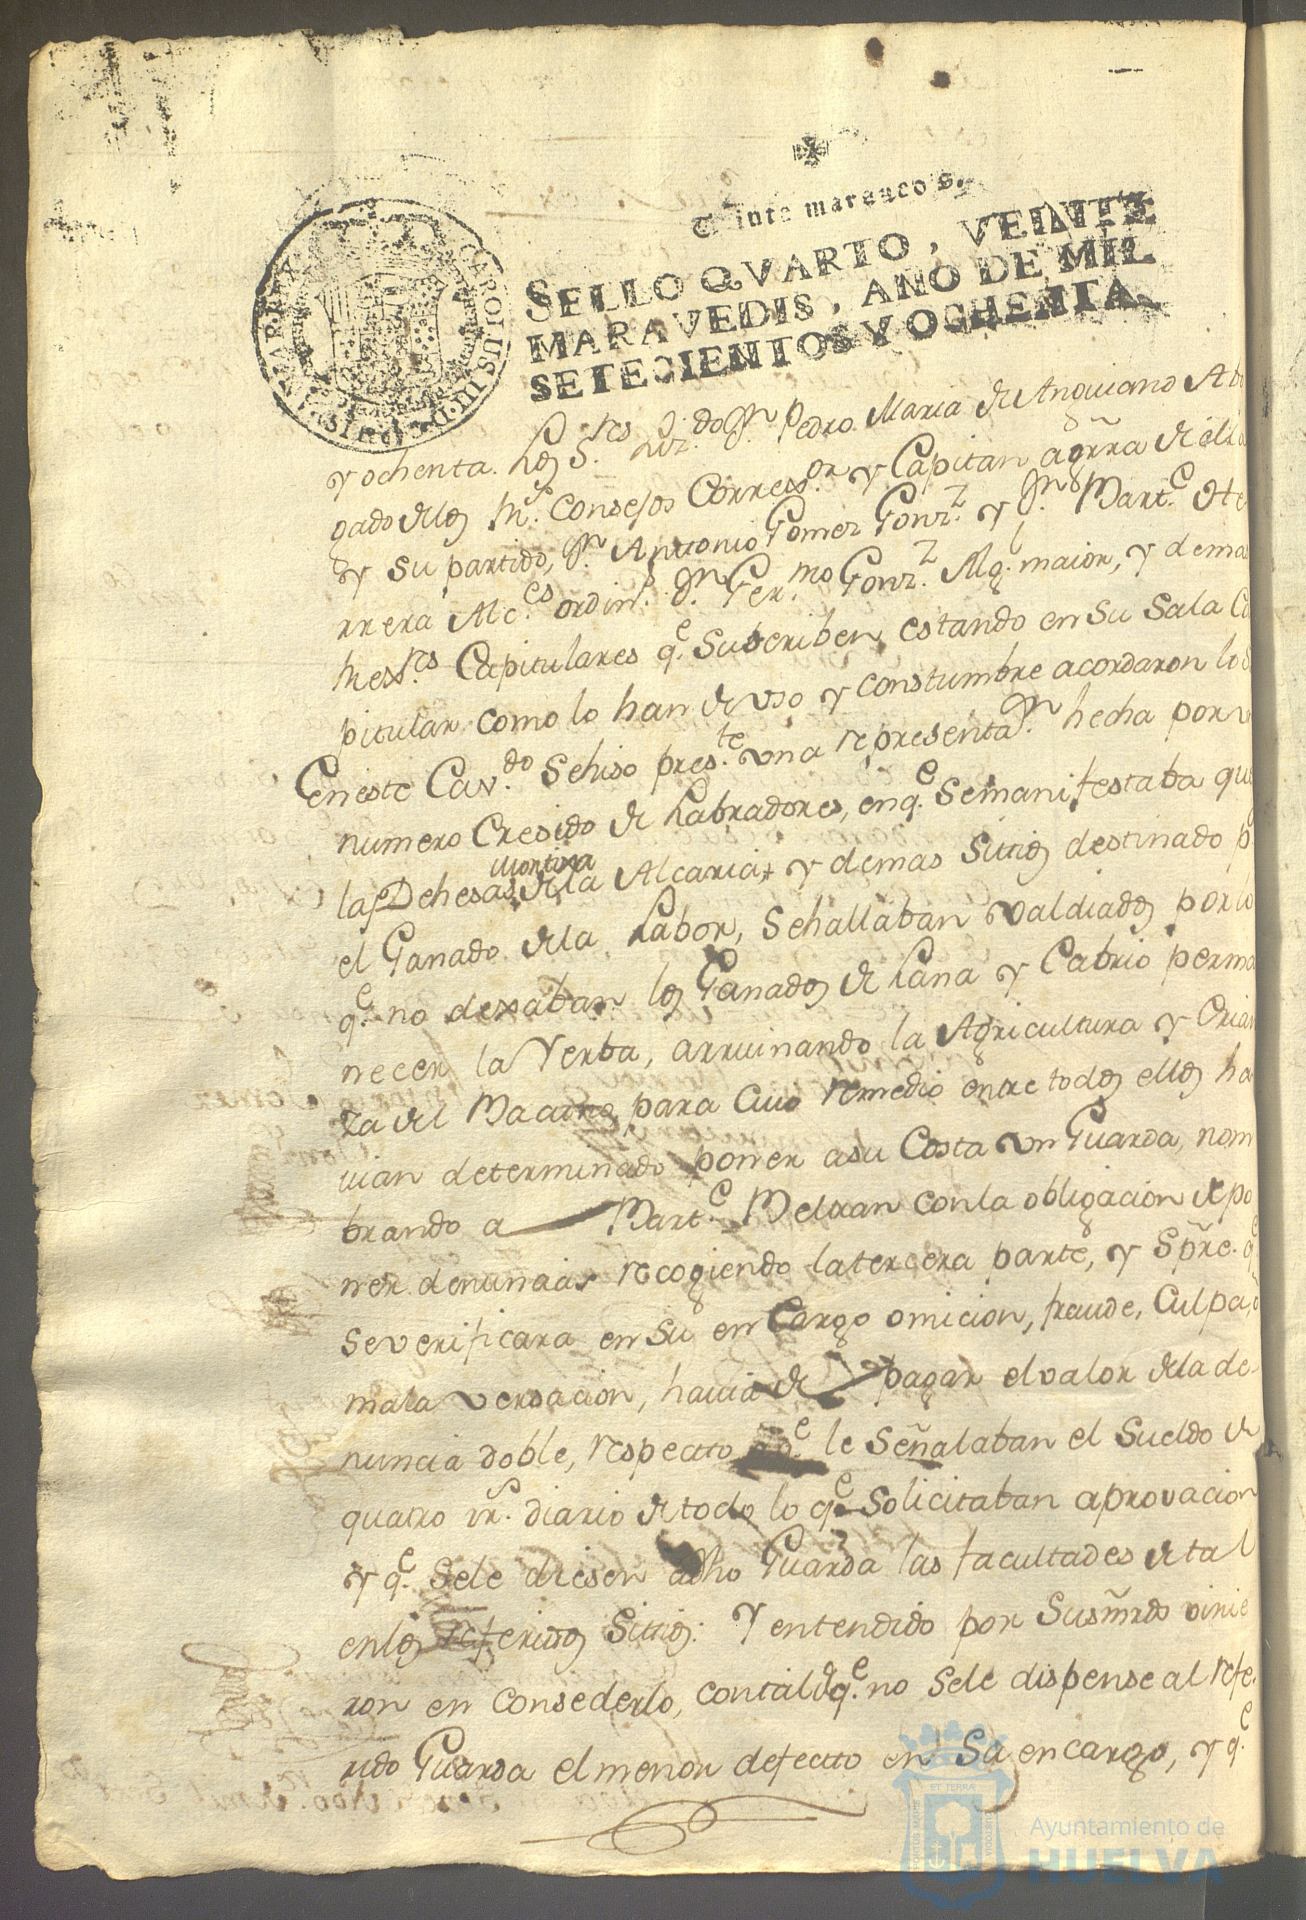 Veinte maravedis.
SELLO QVARTO, VEINTE
MARAVEDIS, AÑO DE MIL
SETECIENTOS Y OCHENTA.
CAROLUS III D G HISPANIAR REX
y ochenta. Los S.res Liz.do Dn Pedro Maria de Anguiano Abo
gado de los Rs. Consejos Corregor y Capitan aguerra de ella
y su partido, Dn. Antonio Gomez Gonz.z y Dn. Mart.e de He
rrera Alc.es ordins. Dn Ger.mo Gonz.z Alg. maior, y demas
Capitulares q.e Subcriben, estando en su Sala Ca
pitular como lo han de uso y constumbre acordaron los
En este Cav.do Sehiso pres.te una representa.n hecha por un
numero Cresido de Labradores, en q.e Semanifestaba que
las Dehesas de la Alcaria, y demas Sitios destinado p.
el Ganado dela Labor, Sehallaban valdiados por lo
q.e no dexaban los Ganados de Lana y Cabrio perma
necer la Yerba, arruinando la Agricultura y Crian
za del para cuio remedio entre todos ellos ha
vian determinado poner asu Costa un Guarda, nom
brando a Mart.e Beltran conla obligacion de po
ner denuncias recogiendo latercera parte, y Spre. q.e
severificara en su en Cargo omicion, fraude, Culpa, o
mala versacion, havia de pagar elvalor dela de
nuncia doble, respecto a q.e le Señalaban el Sueldo de
quatro rs. diario de todo lo q.e Solicitaban aprovacion
y q.e Sele diesen adho Guarda las facultades de tal
enlos referidos Sitios: Y entendido por Susmrds vinie
ron en consederlo, contal de q.e no Sele dispense al refe.
rido Guarda el menor defecto en Su encargo, y q.e
ET TERRÆ
Ayuntamiento de
HUELVA